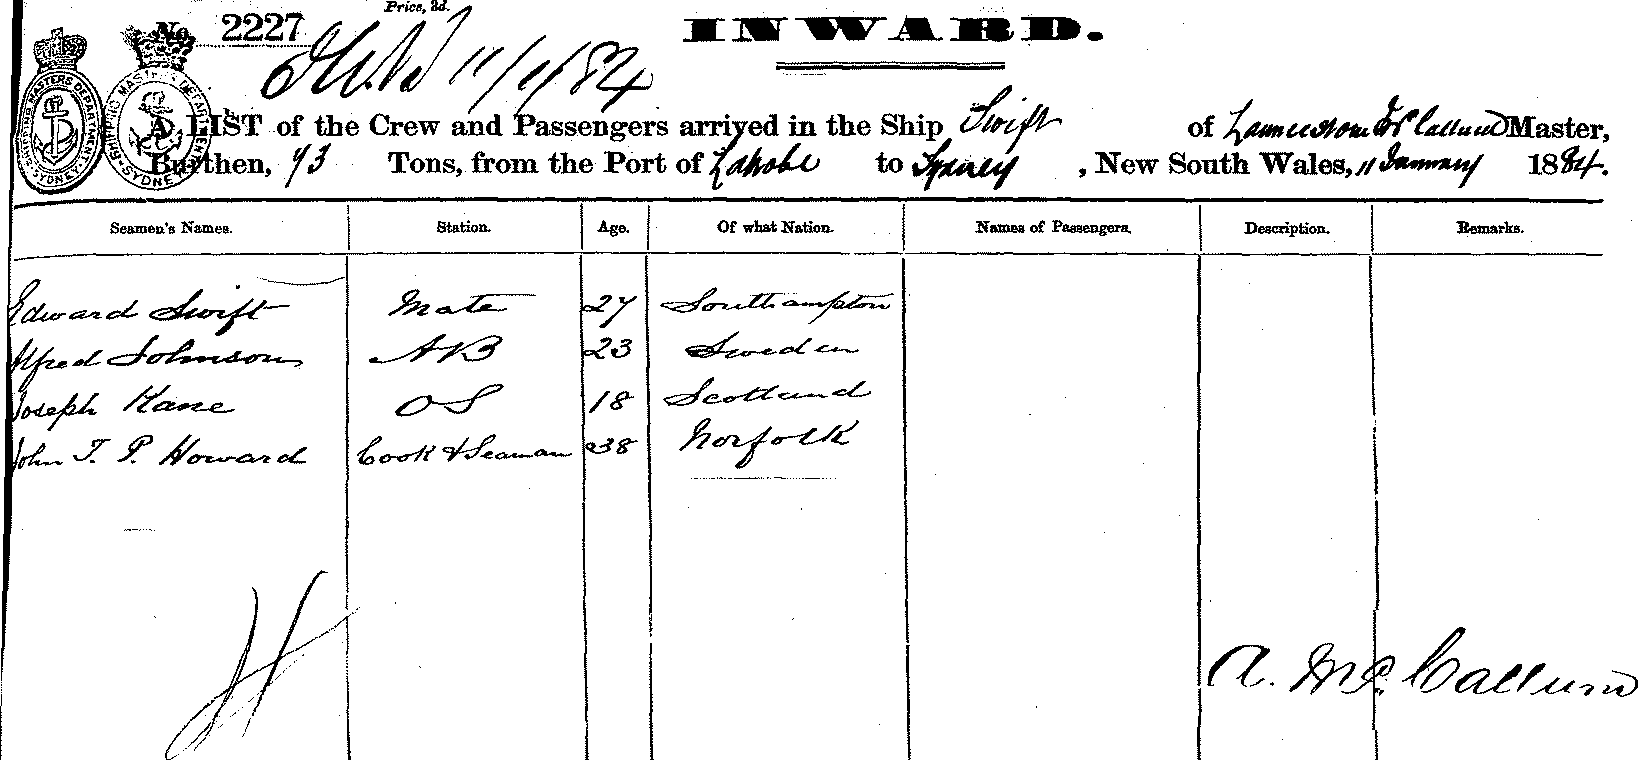 Price, 3d.
No. 2227
INWARD.
11/1/84
A LIST of the Crew and Passengers arrived in the Ship Swift of Launceston Mc Callum Master,
Burthen, 93 Tons, from the Port of Latrobe to Sydney, New South Wales, 11 January 1884.
Seamen's Names. Station. Age. Of what Nation. Names of Passengers. Description. Remarks.
Edward Swift Mate 27 Southampton
Alfred Johnson AB 23 Sweden
Joseph Kane OS 18 Scotland
John T. P. Howard Cook & Seaman 38 Norfolk
A. Mc. Callum
SHIPPING MASTERS DEPARTMENT SYDNEY
SHIPPING MASTERS DEPARTMENT SYDNEY